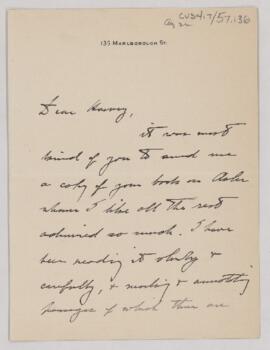 CUS417/57.136
135 MARLBOROUGH ST.
Dear Harvey,
it was most
kind of you to send me
a copy of your book on Osler
whom I like all the rest
admired so much. I have
been reading it slowly &
carefully, & marking & annotating
passages of which there are